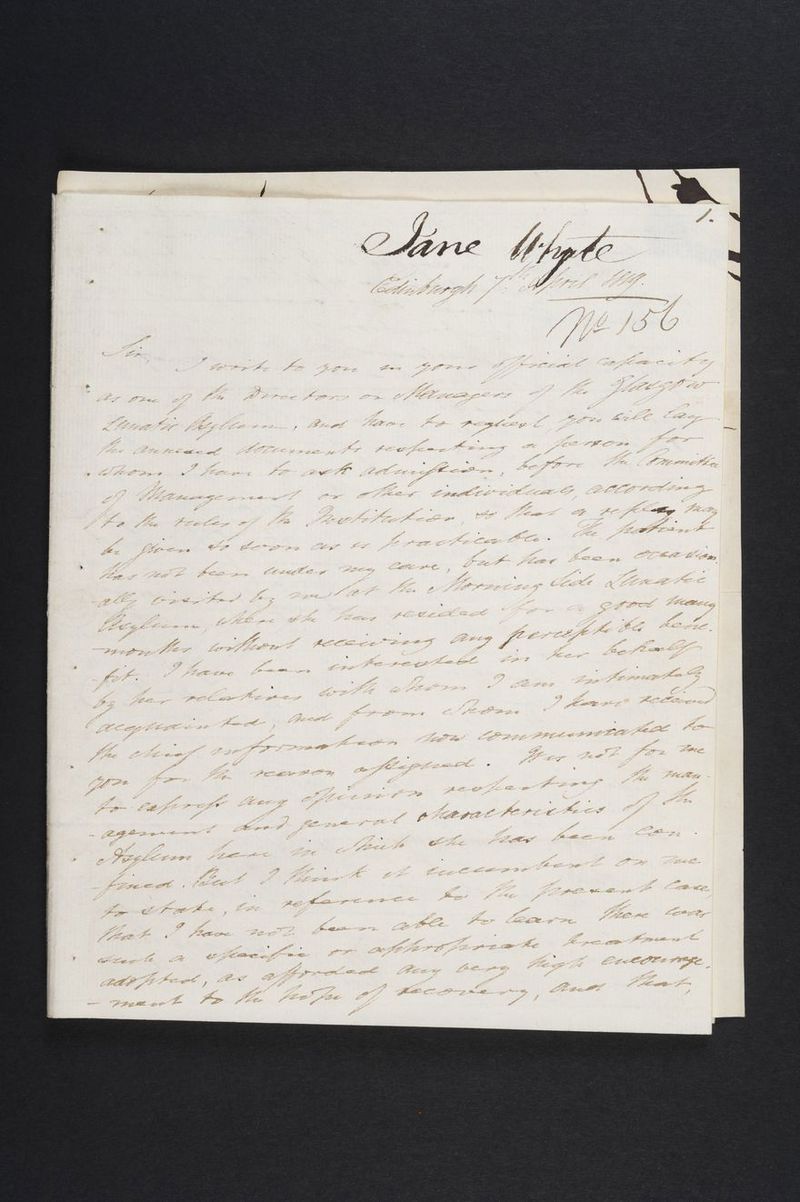 1.
Jane Whyte
Edinburgh 7th April 1819.
No 156
Sir, I write to you in your official capacity
as one of the Directors or Managers of the Glasgow
Lunatic Asylum, and have to request you will lay
the annexed documents respecting a person for
whom I have to ask admission, before the Committee
of Management or other individuals, according
to the rules of the Institution, so that a reply may
be given so soon as is practicable. The patient
has not been under my care, but has been occasion
ally visited by me at the Morning Side Lunatic
Asylum, where she has resided for a good many
months without receiving any perceptible bene-
-fit. I have been interested in her behalf
by her relatives with whom I am intimately
acquainted, and from whom I have received
the chief information now communicated to
you for the reason assigned. It is not for me
to express any opinion respecting the man-
-agement and general characteristics of the
Asylum here in which she has been con-
-fined. But I think it incumbent on me
to state, in reference to the present case,
that I have not been able to learn there was
such a specific or appropriate treatment
adopted, as afforded any very high encourage-
-ment to the hope of recovery, and that,